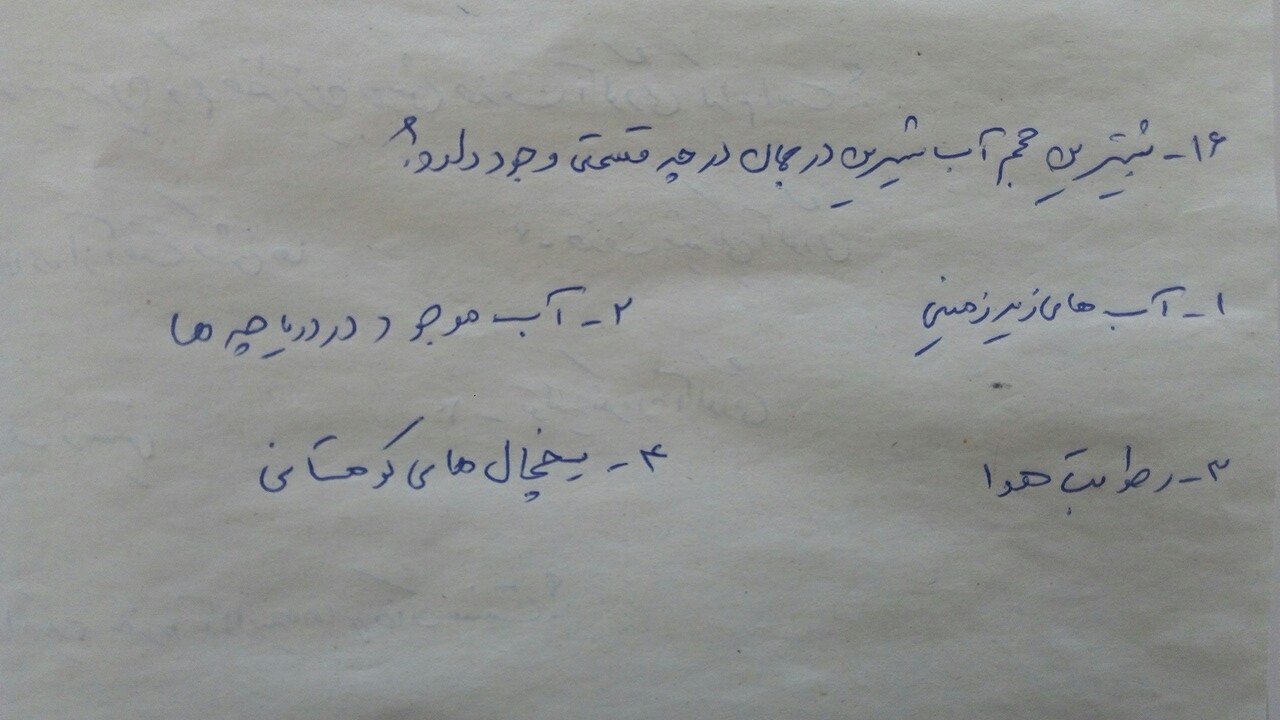 ۱۶- بیشترین حجم آب شیرین در جهان در چه قسمتی وجود دارد؟
۱- آب های زیرزمینی ۲- آب موجود در دریاچه ها
۳- رطوبت هوا ۴- یخچال های کوهستانی